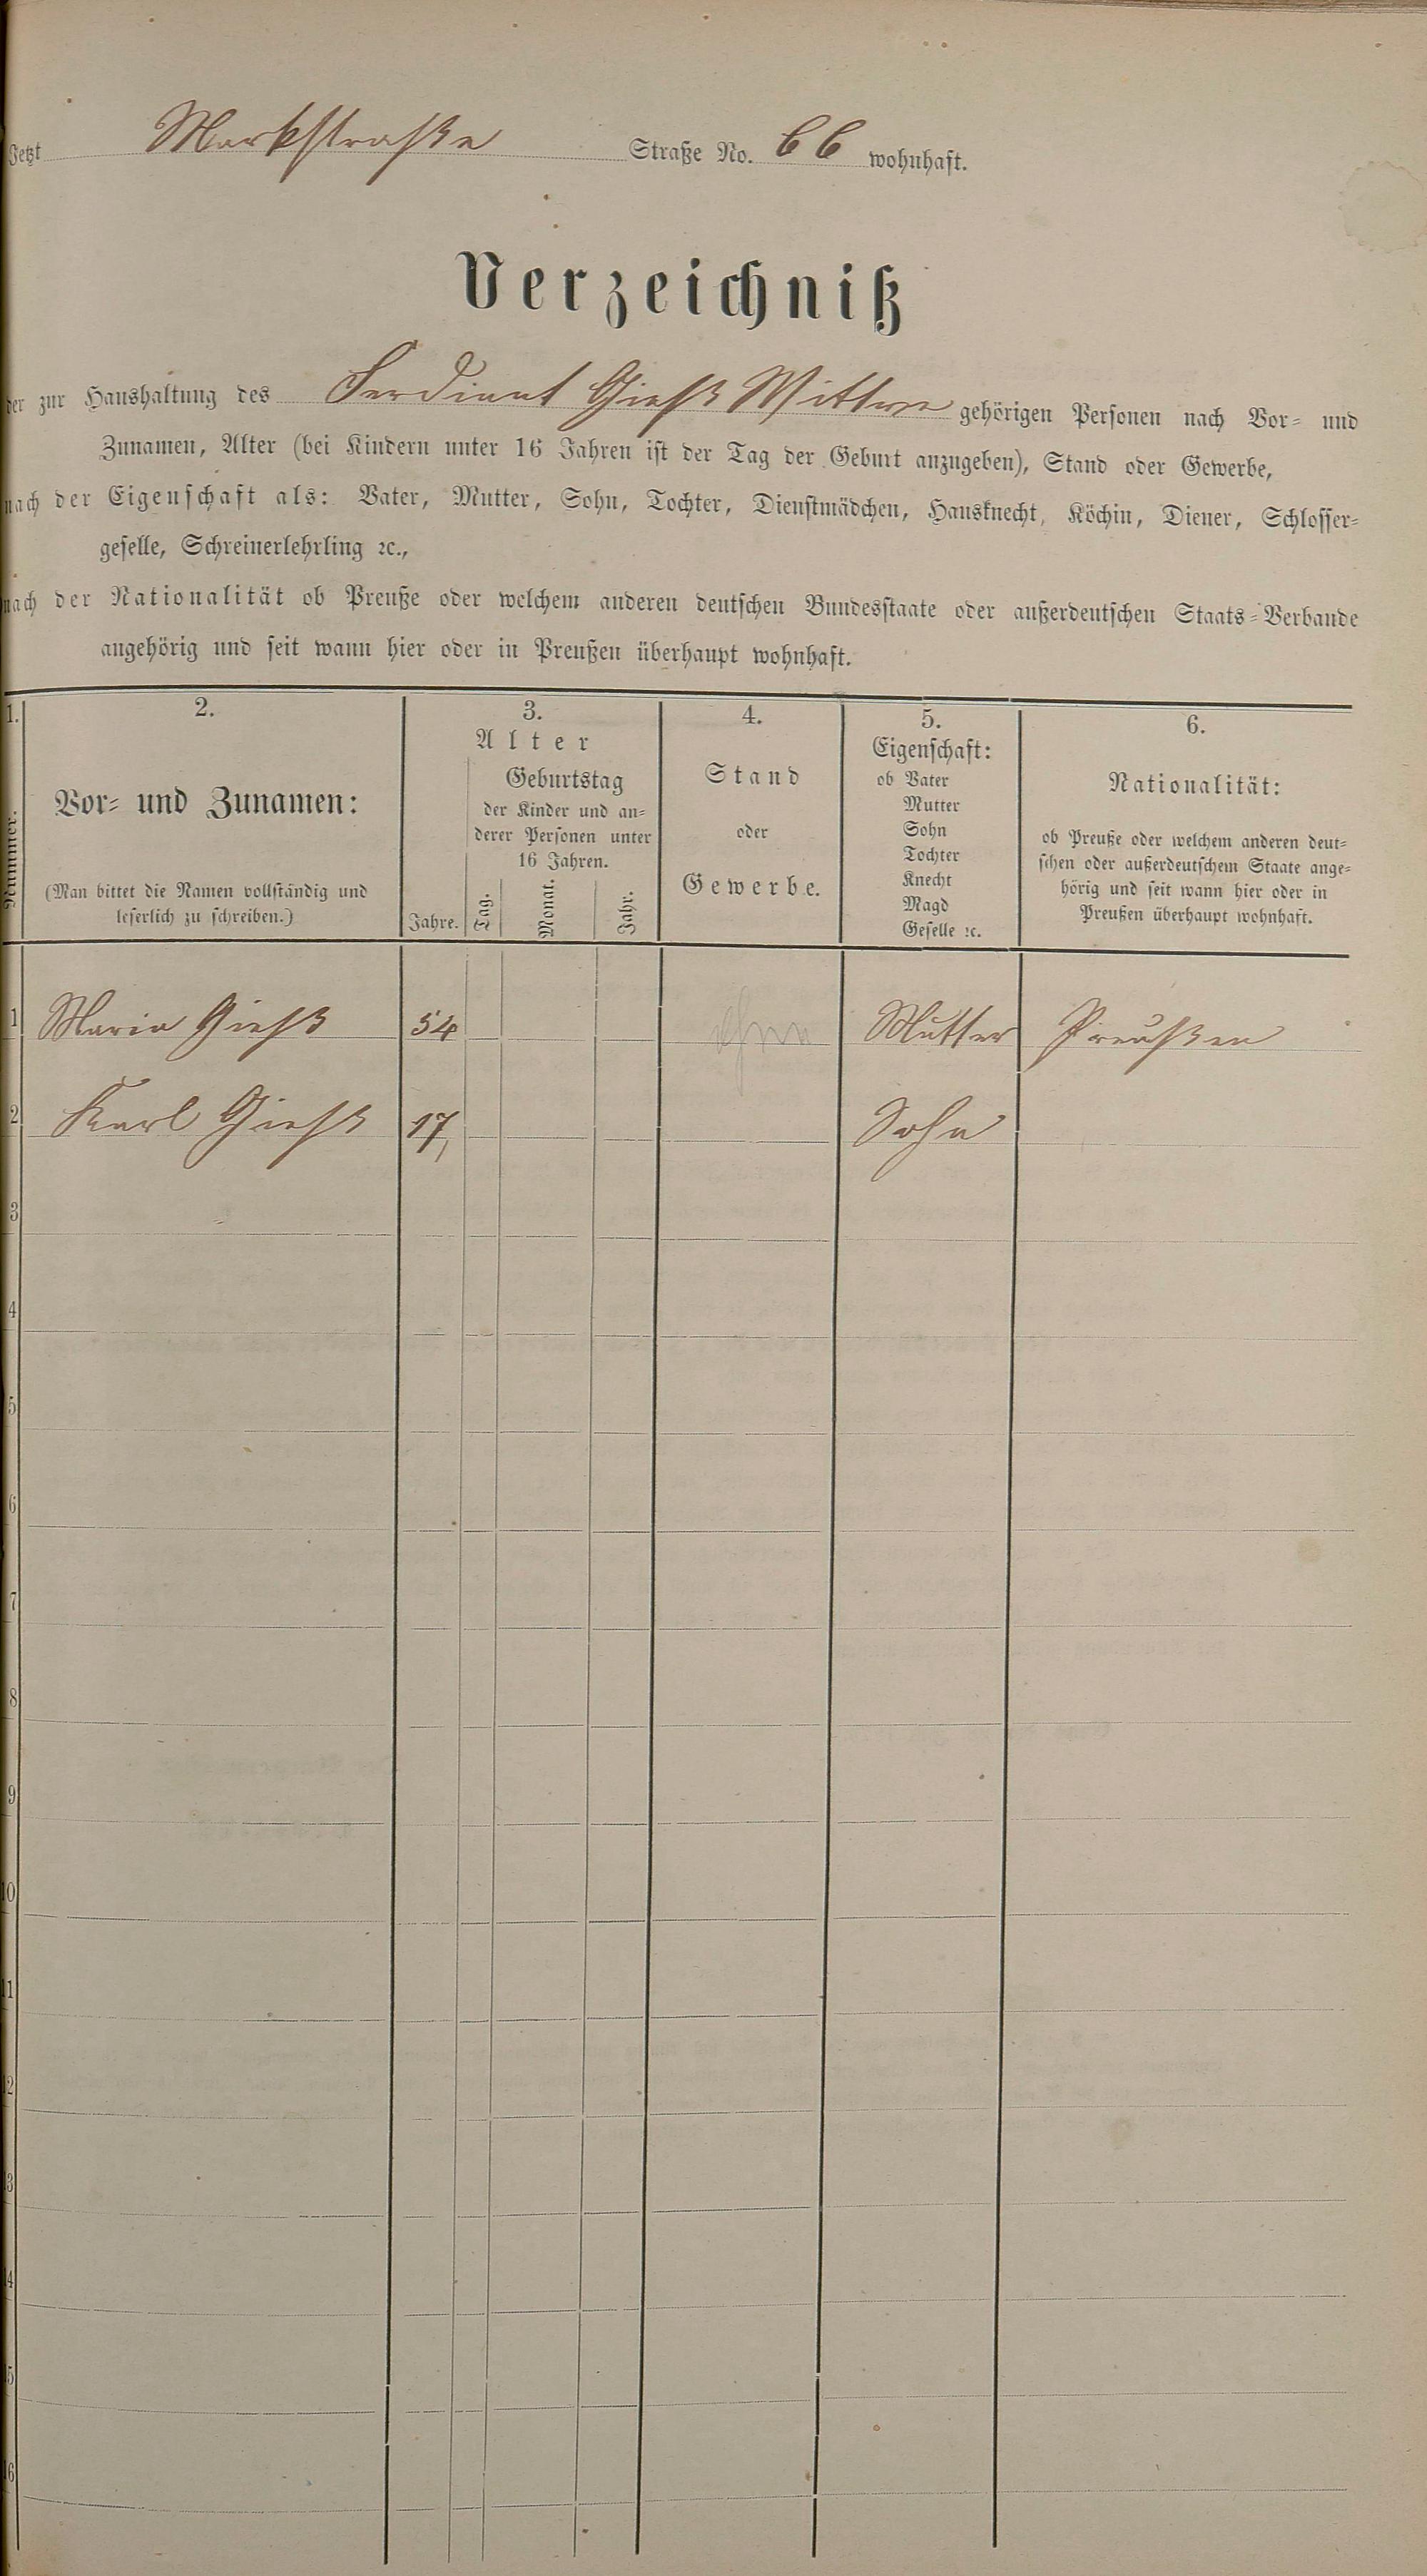 Jetzt Markstraße Straße No. 66 wohnhaft.
Verzeichniß
der zur Haushaltung des Ferdinant Gieß Wittwe gehörigen Personen nach Vor- und
Zunamen, Alter (bei Kindern unter 16 Jahren ist der Tag der Geburt anzugeben), Stand oder Gewerbe,
nach der Eigenschaft als: Vater, Mutter, Sohn, Tochter, Dienstmädchen, Hausknecht, Köchin, Diener, Schlosser-
geselle, Schreinerlehrling ꝛc.,
nach der Nationalität ob Preuße oder welchem anderen deutschen Bundesstaate oder außerdeutschen Staats-Verbande
angehörig und seit wann hier oder in Preußen überhaupt wohnhaft.
1.
Nummer.
2.
Vor- und Zunamen:
(Man bittet die Namen vollständig und
leserlich zu schreiben.)
3.
Alter
Jahre.
Geburtstag
der Kinder und an-
derer Personen unter
16 Jahren.
Tag.
Monat.
Jahr.
4.
Stand
oder
Gewerbe.
5.
Eigenschaft:
ob Vater
Mutter
Sohn
Tochter
Knecht
Magd
Geselle ꝛc.
6.
Nationalität:
ob Preuße oder welchem anderen deut-
schen oder außerdeutschem Staate ange-
hörig und seit wann hier oder in
Preußen überhaupt wohnhaft.
1 Maria Gieß 54 Mutter Preußen
2 Karl Gieß 17, Sohn
3
4
5
6
7
8
9
10
11
12
13
14
15
16